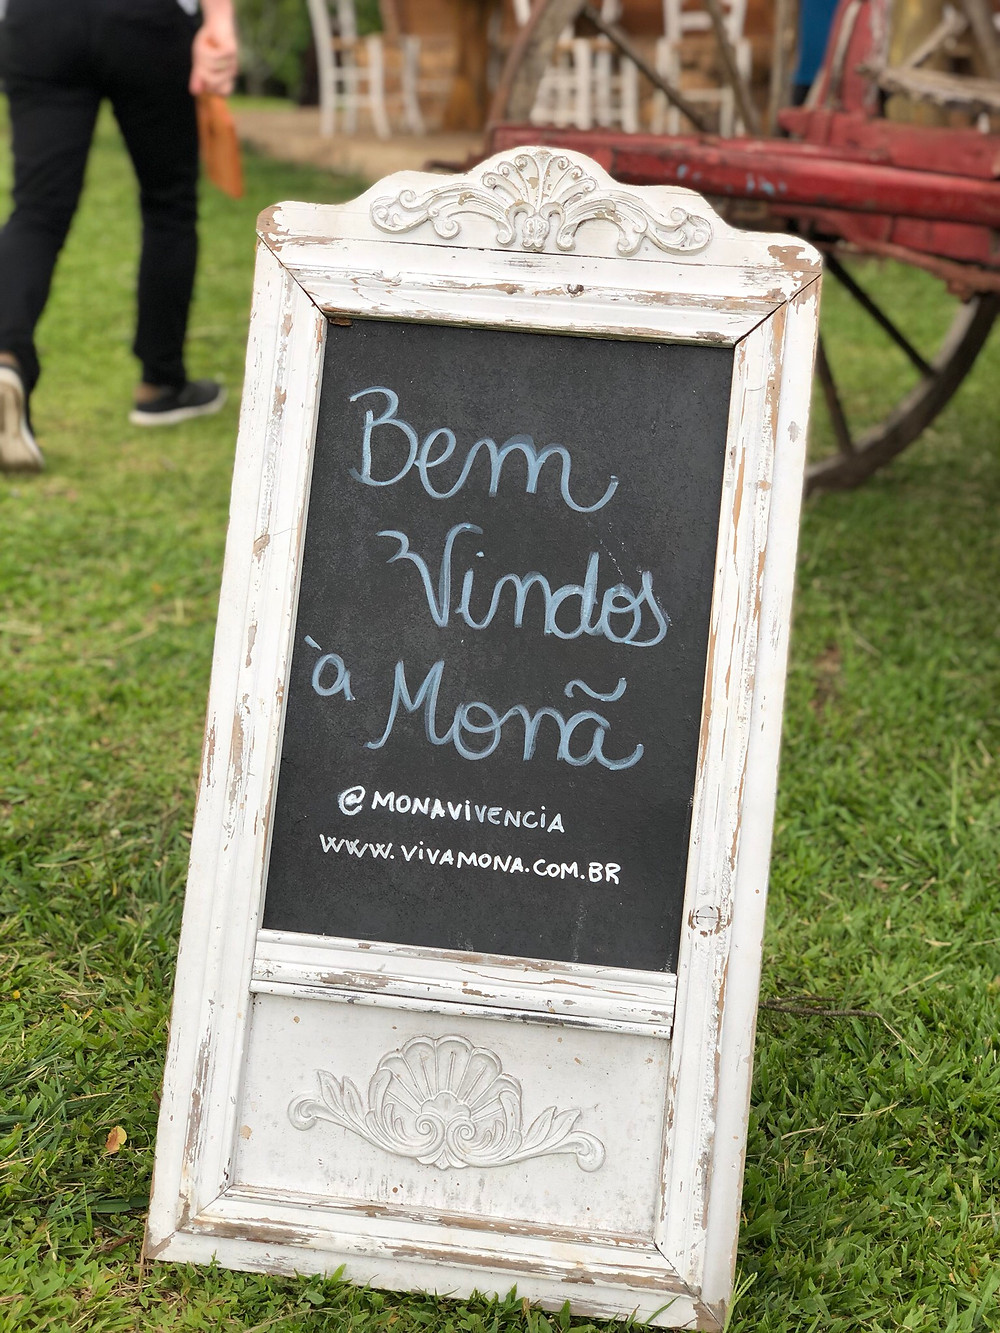 Bem
Vindos
à Monã
@MONAViVENCiA
WWW.ViVAMONA.COM.BR